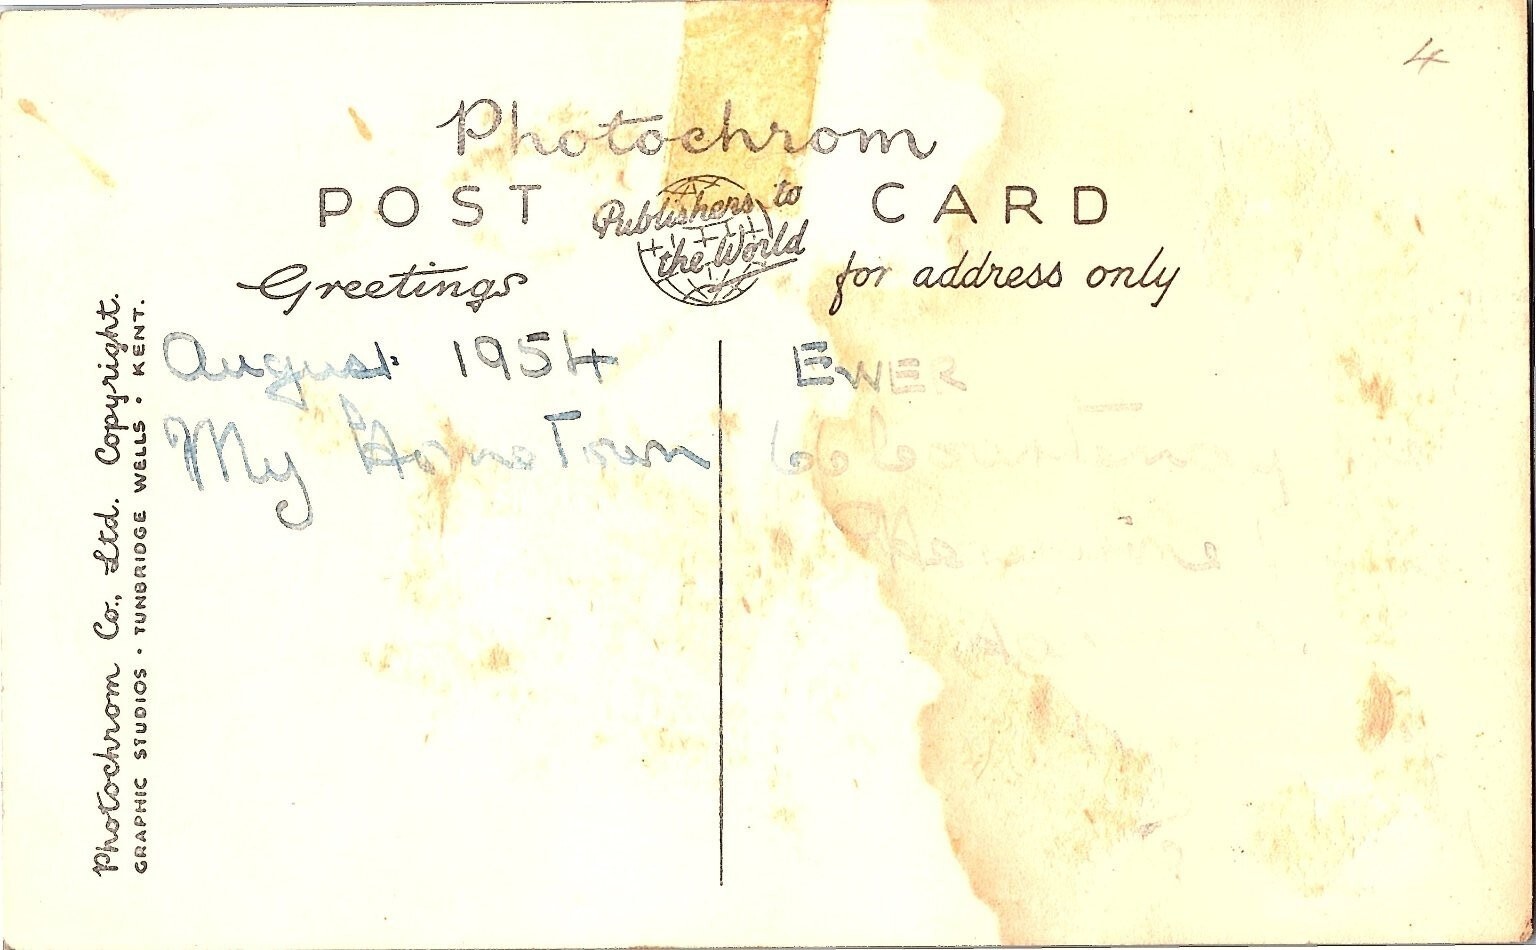 4
Photochrom
POST CARD
Publishers to
the World
Greetings
for address only
August 1954
My Home Town
EWER
66
Photochrom Co., Ltd. Copyright.
GRAPHIC STUDIOS · TUNBRIDGE WELLS · KENT.